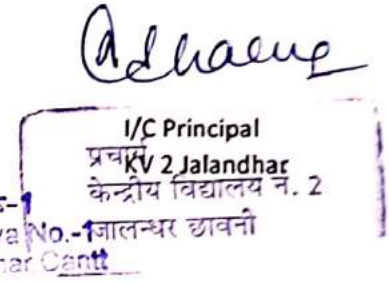 I/C Principal
प्रचार्य
KV 2 Jalandhar
केन्द्रीय विद्यालय नं. 2
No.-1 जालन्धर छावनी
Cantt